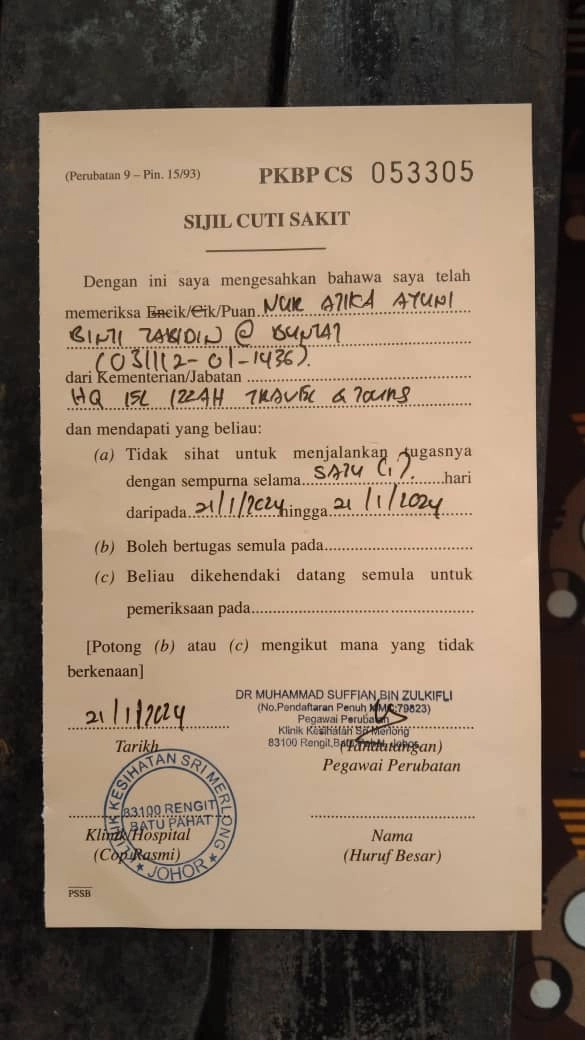 (Perubatan 9 – Pin. 15/93) PKBP CS 053305
SIJIL CUTI SAKIT
Dengan ini saya mengesahkan bahawa saya telah
memeriksa Encik/Cik/Puan NUR ATIKA AYUNI
BINTI ZABIDIN @ BUNTAT
(031112-01-1436).
dari Kementerian/Jabatan
HQ ISL IZZAH TRAVEL & TOURS
dan mendapati yang beliau:
(a) Tidak sihat untuk menjalankan tugasnya
dengan sempurna selama SATU (1). hari
daripada 21/1/2024 hingga 21/1/2024
(b) Boleh bertugas semula pada
(c) Beliau dikehendaki datang semula untuk
pemeriksaan pada
[Potong (b) atau (c) mengikut mana yang tidak
berkenaan]
DR MUHAMMAD SUFFIAN BIN ZULKIFLI
(No.Pendaftaran Penuh MMC:79823)
Pegawai Perubatan
Klinik Kesihatan Sri Merlong
83100 Rengit, Batu Pahat, Johor
21/1/2024
Tarikh
(Tandatangan)
Pegawai Perubatan
KLINIK KESIHATAN SRI MERLONG
83100 RENGIT
BATU PAHAT
★ JOHOR ★
Klinik/Hospital
(Cop Rasmi)
Nama
(Huruf Besar)
PSSB